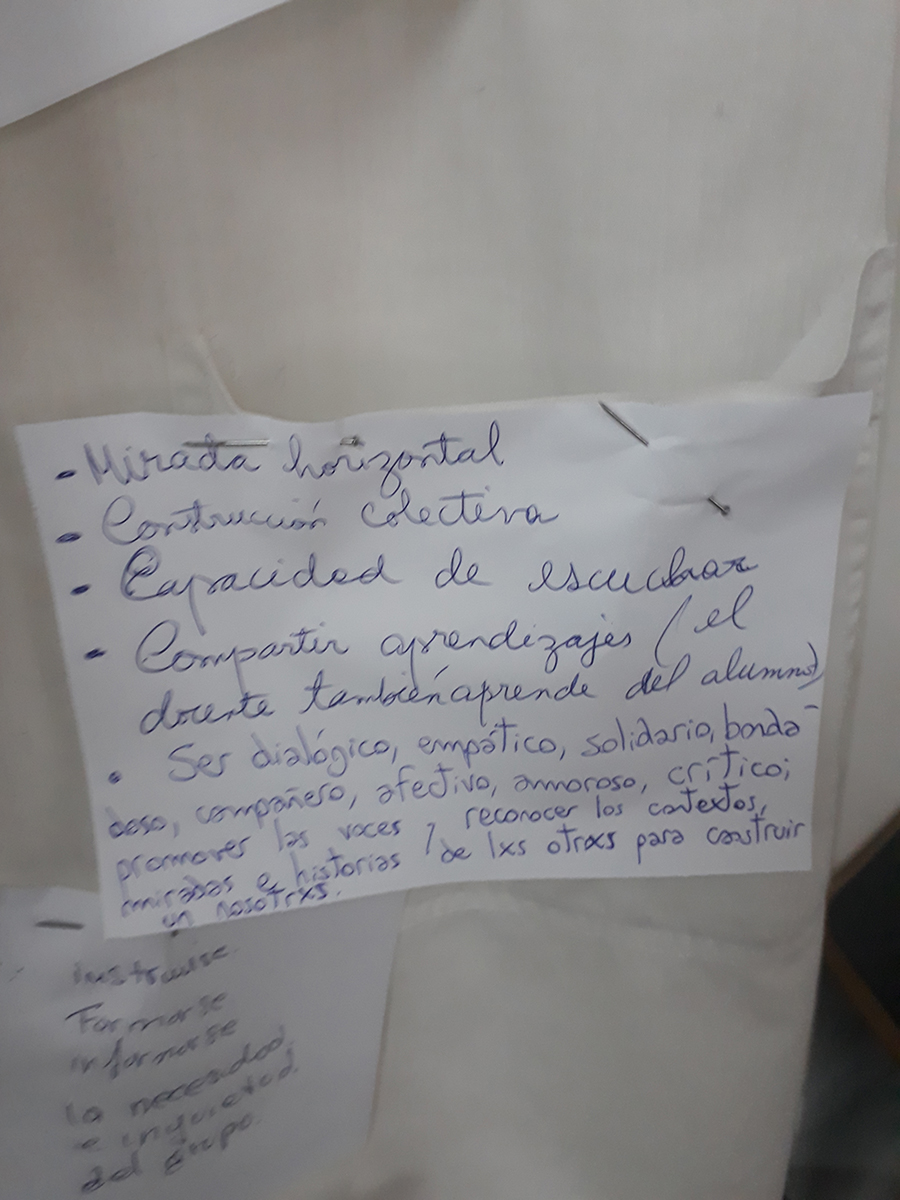 - Mirada horizontal
- Construcción colectiva
- Capacidad de escuchar
- Compartir aprendizajes (el
docente también aprende del alumno)
• Ser dialógico, empático, solidario, bonda-
doso, compañero, afectivo, amoroso, crítico;
promover las voces, reconocer los contextos,
miradas e historias de lxs otrxs para construir
un nosotrxs.
instruirse
Formarse
informarse
la necesidad
e inquietud
del grupo.